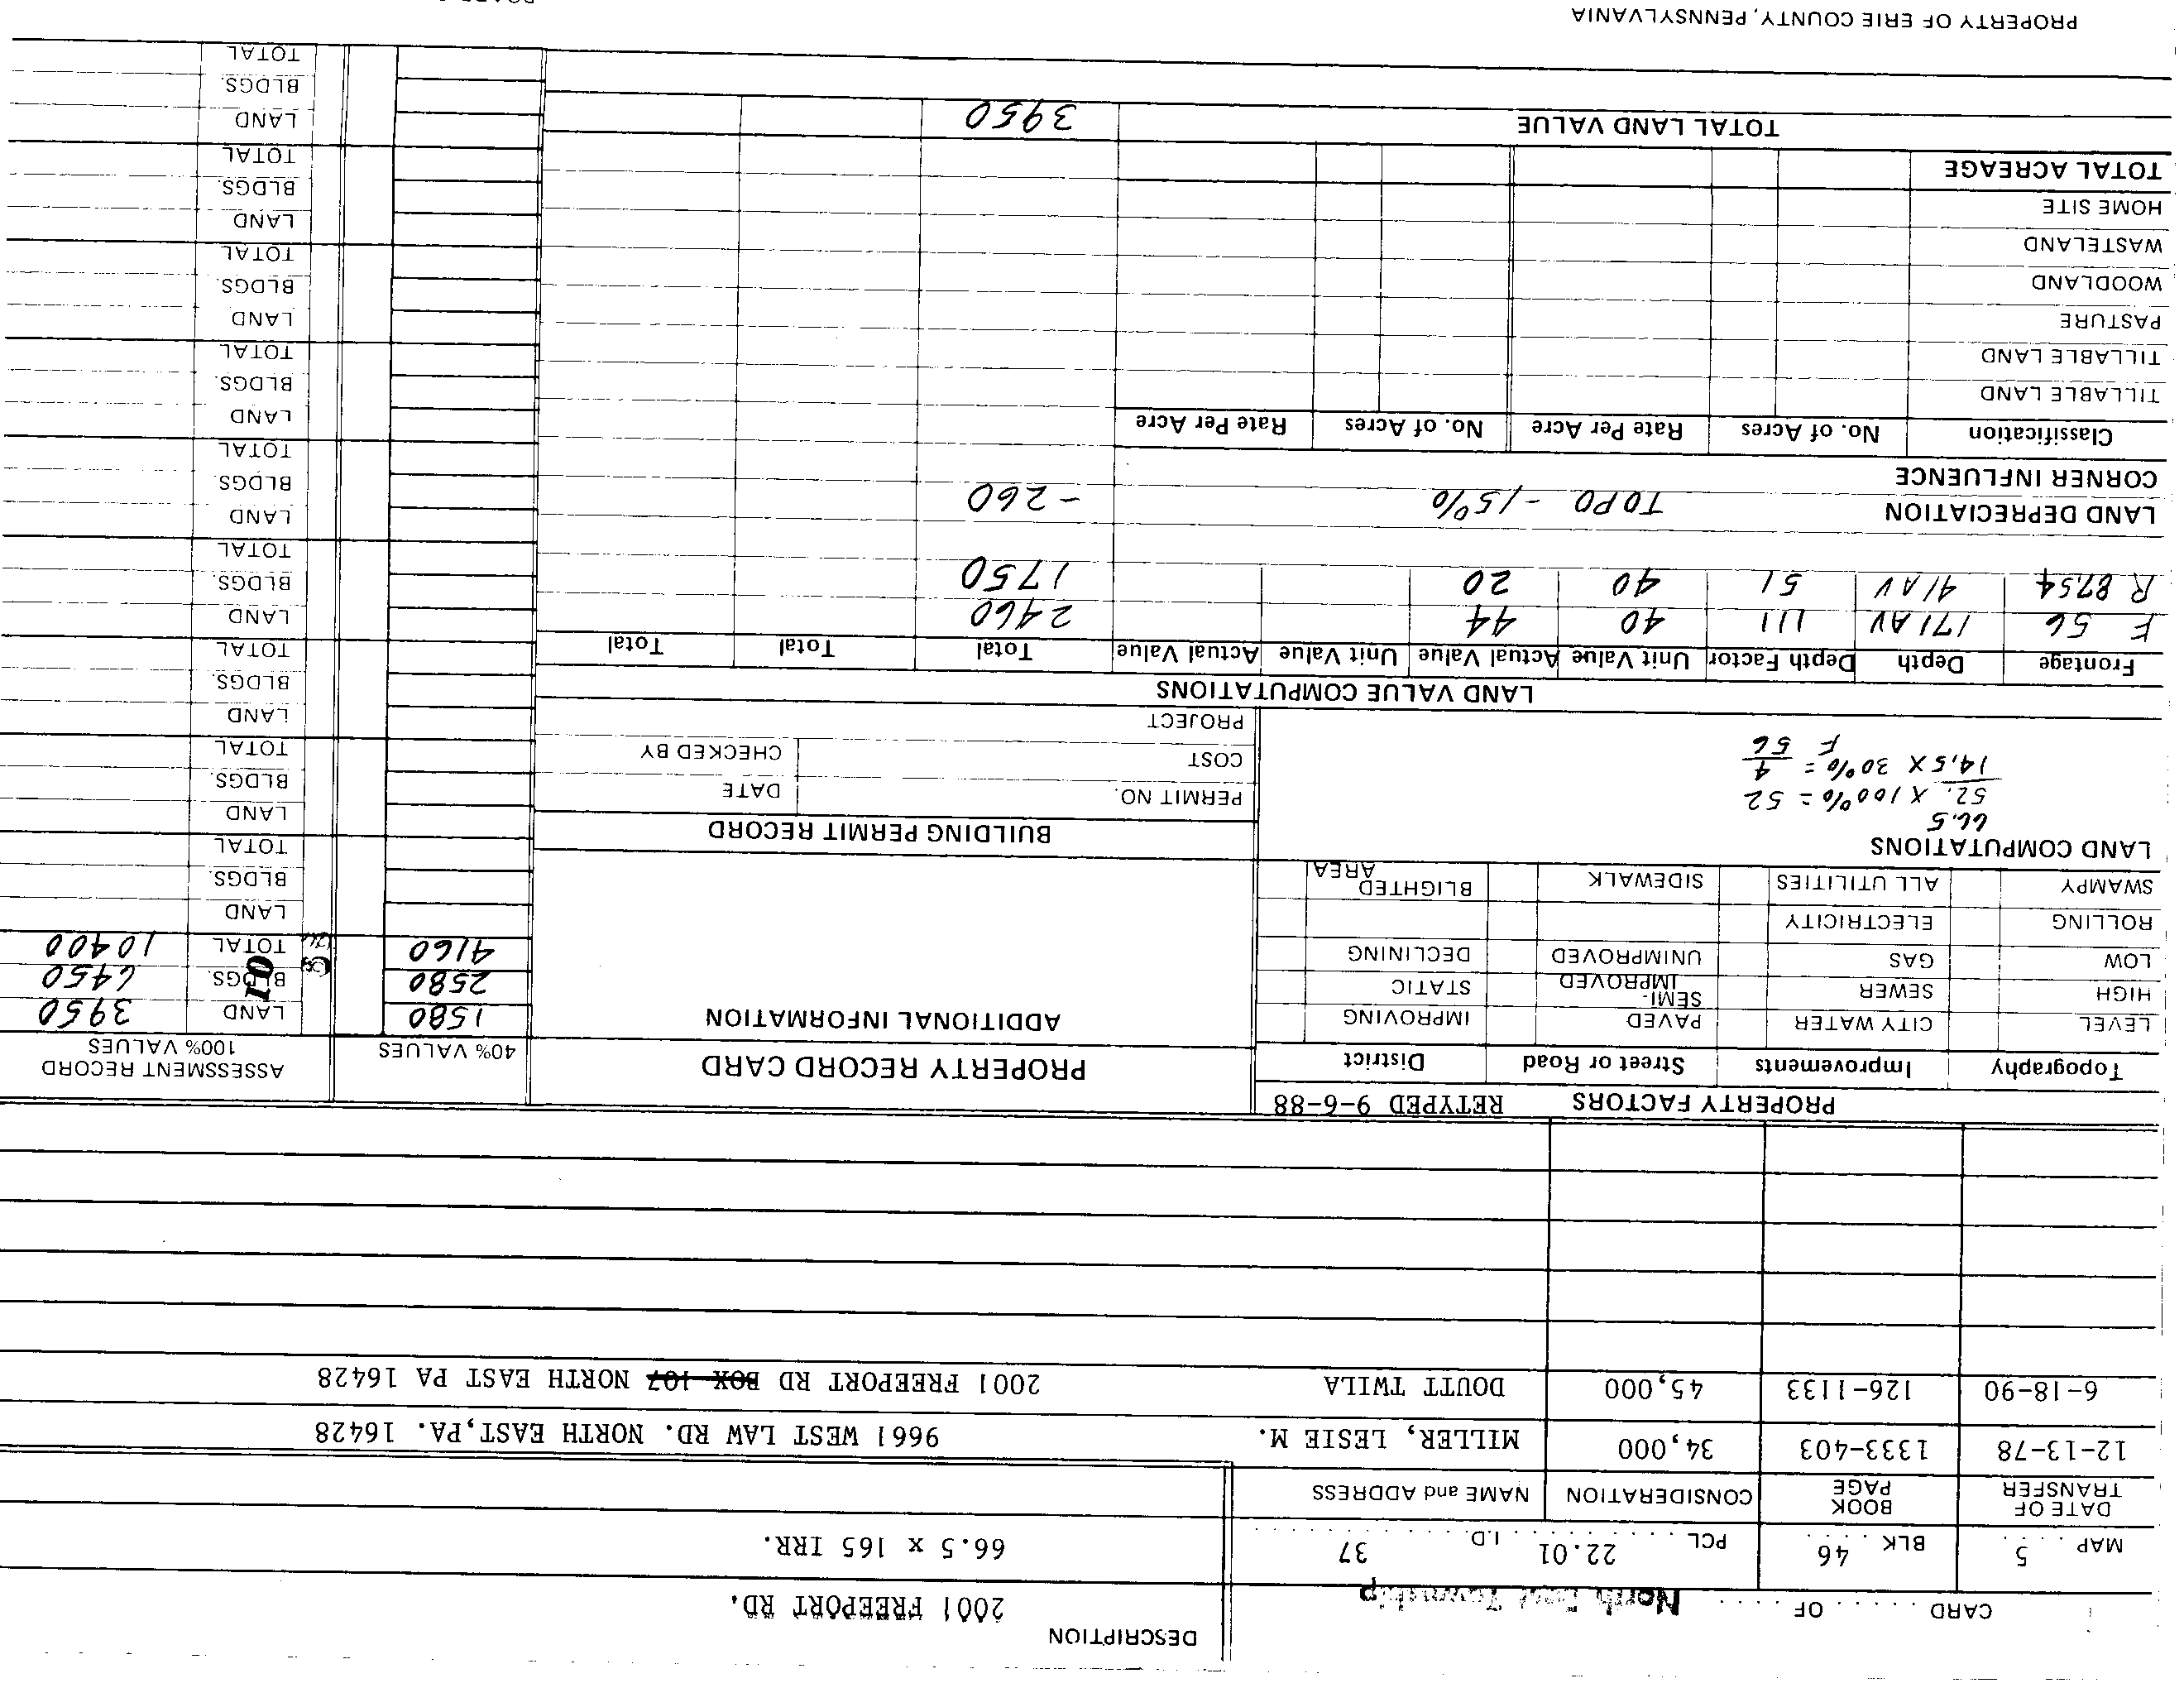 DESCRIPTION
CARD OF North East Township
2001 FREEPORT RD.
MAP 5 BLK 46 PCL 22.01 I.D. 37
66.5 x 165 IRR.
DATE OF TRANSFER BOOK PAGE CONSIDERATION NAME and ADDRESS
12-13-78 1333-403 34,000 MILLER, LESIE M. 9661 WEST LAW RD. NORTH EAST,PA. 16428
6-18-90 126-1133 45,000 DOUTT TWILA 2001 FREEPORT RD BOX 107 NORTH EAST PA 16428
PROPERTY FACTORS RETYPED 9-6-88
Topography Improvements Street or Road District
LEVEL CITY WATER PAVED IMPROVING
HIGH SEWER SEMI-IMPROVED STATIC
LOW GAS UNIMPROVED DECLINING
ROLLING ELECTRICITY
SWAMPY ALL UTILITIES SIDEWALK BLIGHTED AREA
LAND COMPUTATIONS
66.5
52. X 100% = 52
14.5 X 30% = 4
F 56
PROPERTY RECORD CARD
ADDITIONAL INFORMATION
BUILDING PERMIT RECORD
PERMIT NO. DATE
COST CHECKED BY
PROJECT
40% VALUES ASSESSMENT RECORD 100% VALUES
1580 LAND 3950
2580 BLDGS. 6450
4160 TOTAL 10400
10
LAND
BLDGS.
TOTAL
LAND
BLDGS.
TOTAL
LAND
BLDGS.
TOTAL
LAND
BLDGS.
TOTAL
LAND
BLDGS.
TOTAL
LAND
BLDGS.
TOTAL
LAND
BLDGS.
TOTAL
LAND
BLDGS.
TOTAL
LAND
BLDGS.
TOTAL
LAND VALUE COMPUTATIONS
Frontage Depth Depth Factor Unit Value Actual Value Unit Value Actual Value Total Total Total
F 56 171 AV 111 40 44 2460
R 87.54 41 AV 51 40 20 1750
LAND DEPRECIATION TOPO -15% -260
CORNER INFLUENCE
Classification No. of Acres Rate Per Acre No. of Acres Rate Per Acre
TILLABLE LAND
TILLABLE LAND
PASTURE
WOODLAND
WASTELAND
HOME SITE
TOTAL ACREAGE
TOTAL LAND VALUE 3950
PROPERTY OF ERIE COUNTY, PENNSYLVANIA